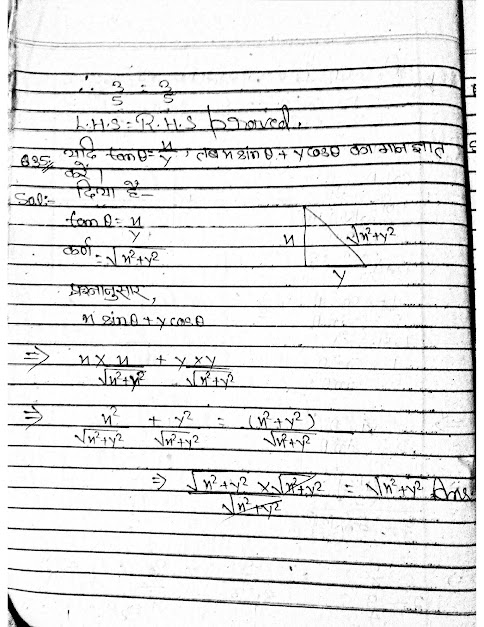 ∴ 3/5 = 3/5
L.H.S = R.H.S proved.
Q35. यदि tanθ = x/y, तब x sinθ + y cosθ का मान ज्ञात
करें।
Sol:- दिया है-
tanθ = x/y
कर्ण = √x²+y²
x
√x²+y²
y
प्रश्नानुसार,
x sinθ + y cosθ
⇒ x × x/√x²+y² + y × y/√x²+y²
⇒ x²/√x²+y² + y²/√x²+y² = (x²+y²)/√x²+y²
⇒ √x²+y² × √x²+y²/√x²+y² = √x²+y² Ans